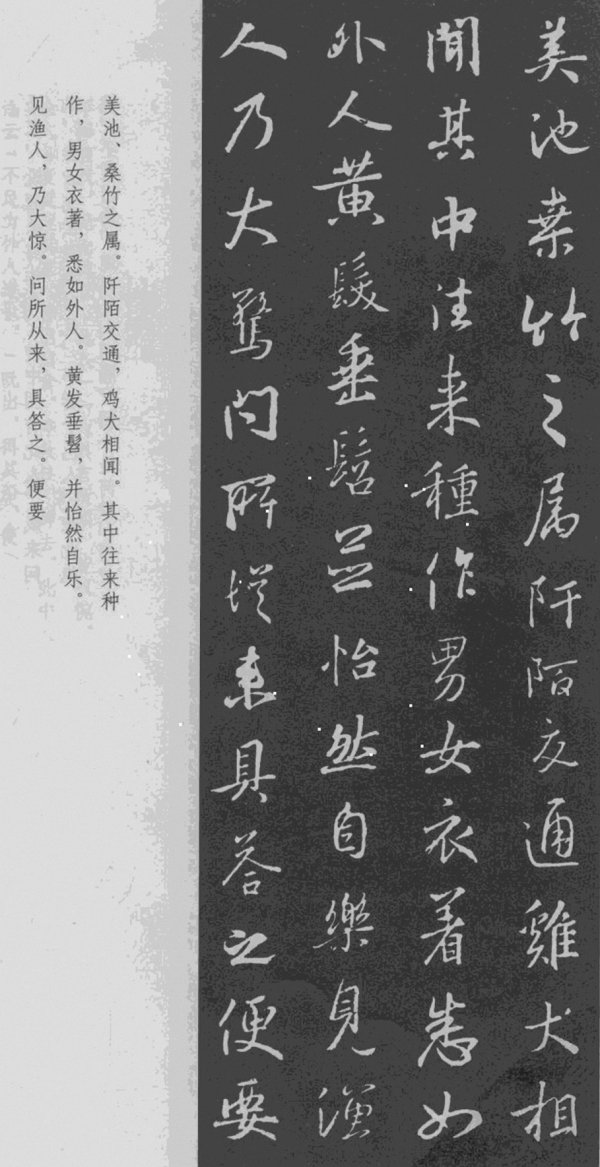 美池桒竹之属阡陌交通雞犬相
聞其中往来種作男女衣着悉如
外人黄髮垂髫並怡然自樂見漁
人乃大驚問所從来具荅之便要
美池、桑竹之属。阡陌交通，鸡犬相闻。其中往来种
作，男女衣著，悉如外人。黄发垂髫，并怡然自乐。
见渔人，乃大惊。问所从来，具答之。便要